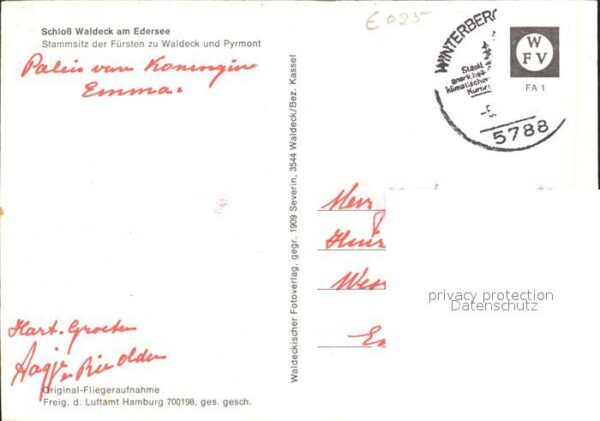 Schloß Waldeck am Edersee
Stammsitz der Fürsten zu Waldeck und Pyrmont
Paleis van Koningin
Emma.
Hart. Groeten
Original-Fliegeraufnahme
Freig. d. Luftamt Hamburg 700198, ges. gesch.
Waldeckischer Fotoverlag, gegr. 1909 Severin, 3544 Waldeck/Bez. Kassel
E 025
WINTERBERG
Staatl
klimatischer
Kurort
5788
W
FV
FA 1
privacy protection
Datenschutz